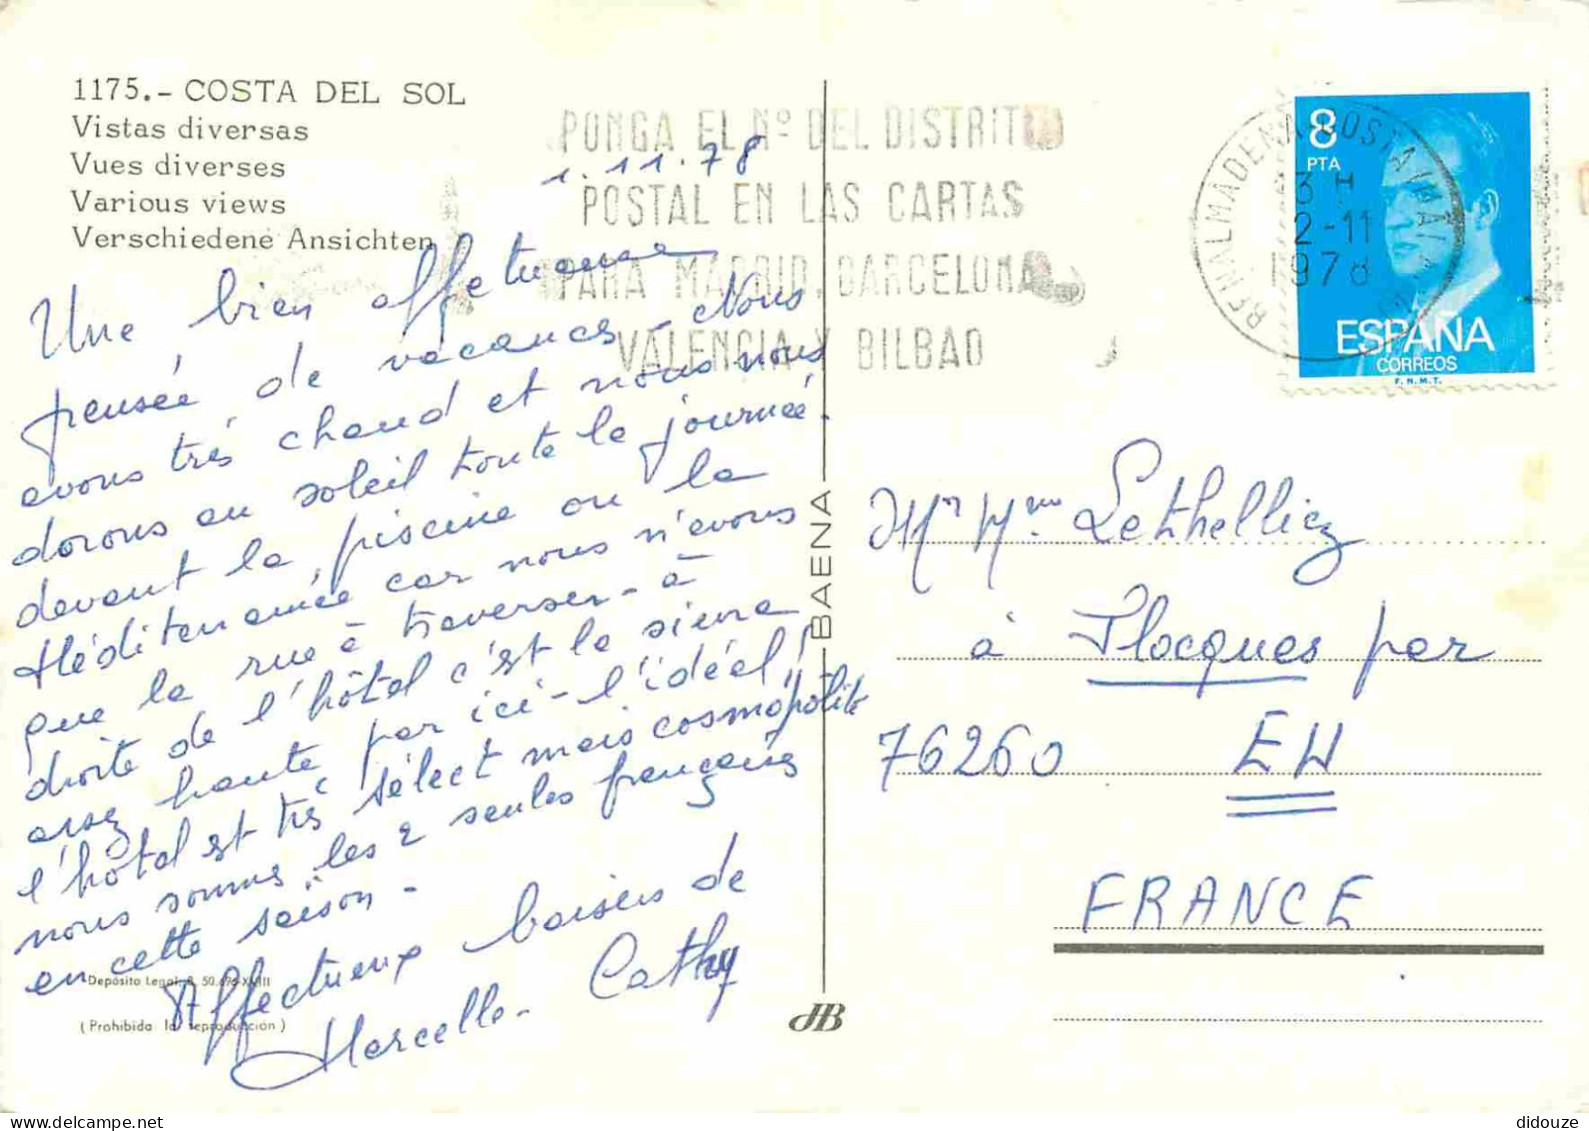 1175.- COSTA DEL SOL
Vistas diversas
Vues diverses
Various views
Verschiedene Ansichten
PONGA EL Nº DEL DISTRITO
POSTAL EN LAS CARTAS
PARA MADRID, BARCELONA
VALENCIA Y BILBAO
1.11.78
Une bien affetueuse
pensée de vacances - Nous
avons très chaud et nous nous
dorons au soleil toute la journée.
devant la piscine ou la
Méditerranée car nous n'avons
que la rue à traverser - à
droite de l'hôtel c'est la sierra
assez haute par ici - l'idéal!
l'hôtel est très sélect mais cosmopolite
nous sommes les 2 seules françaises
en cette saison -
Affectueux baisers de
Marcelle - Cathy
Depósito Legal, B. 50.696-XVIII
(Prohibida la reproducción)
BAENA
JB
8
PTA
ESPAÑA
CORREOS
F.N.M.T.
BENALMADENA COSTA
3 H
2-11
1978
Mr Mme Lethelliez
à Flocques par
76260 EU
FRANCE
didouze